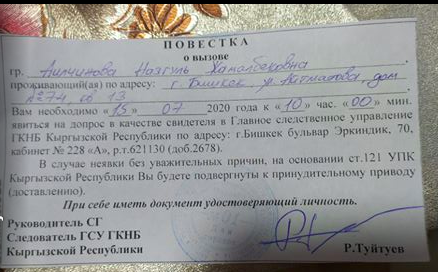 ПОВЕСТКА
о вызове
гр. Акичинова Назгуль Камалбековна
проживающий(ая) по адресу: г. Бишкек ул. Айтматова, дом
№ 274 кв 13
Вам необходимо «15» 07 2020 года к «10» час. «00» мин.
явиться на допрос в качестве свидетеля в Главное следственное управление
ГКНБ Кыргызской Республики по адресу: г.Бишкек бульвар Эркиндик, 70,
кабинет № 228 «А», р.т.621130 (доб.2678).
В случае неявки без уважительных причин, на основании ст.121 УПК
Кыргызской Республики Вы будете подвергнуты к принудительному приводу
(доставлению).
При себе иметь документ удостоверяющий личность.
Руководитель СГ
Следователь ГСУ ГКНБ
Кыргызской Республики Р.Туйтуев